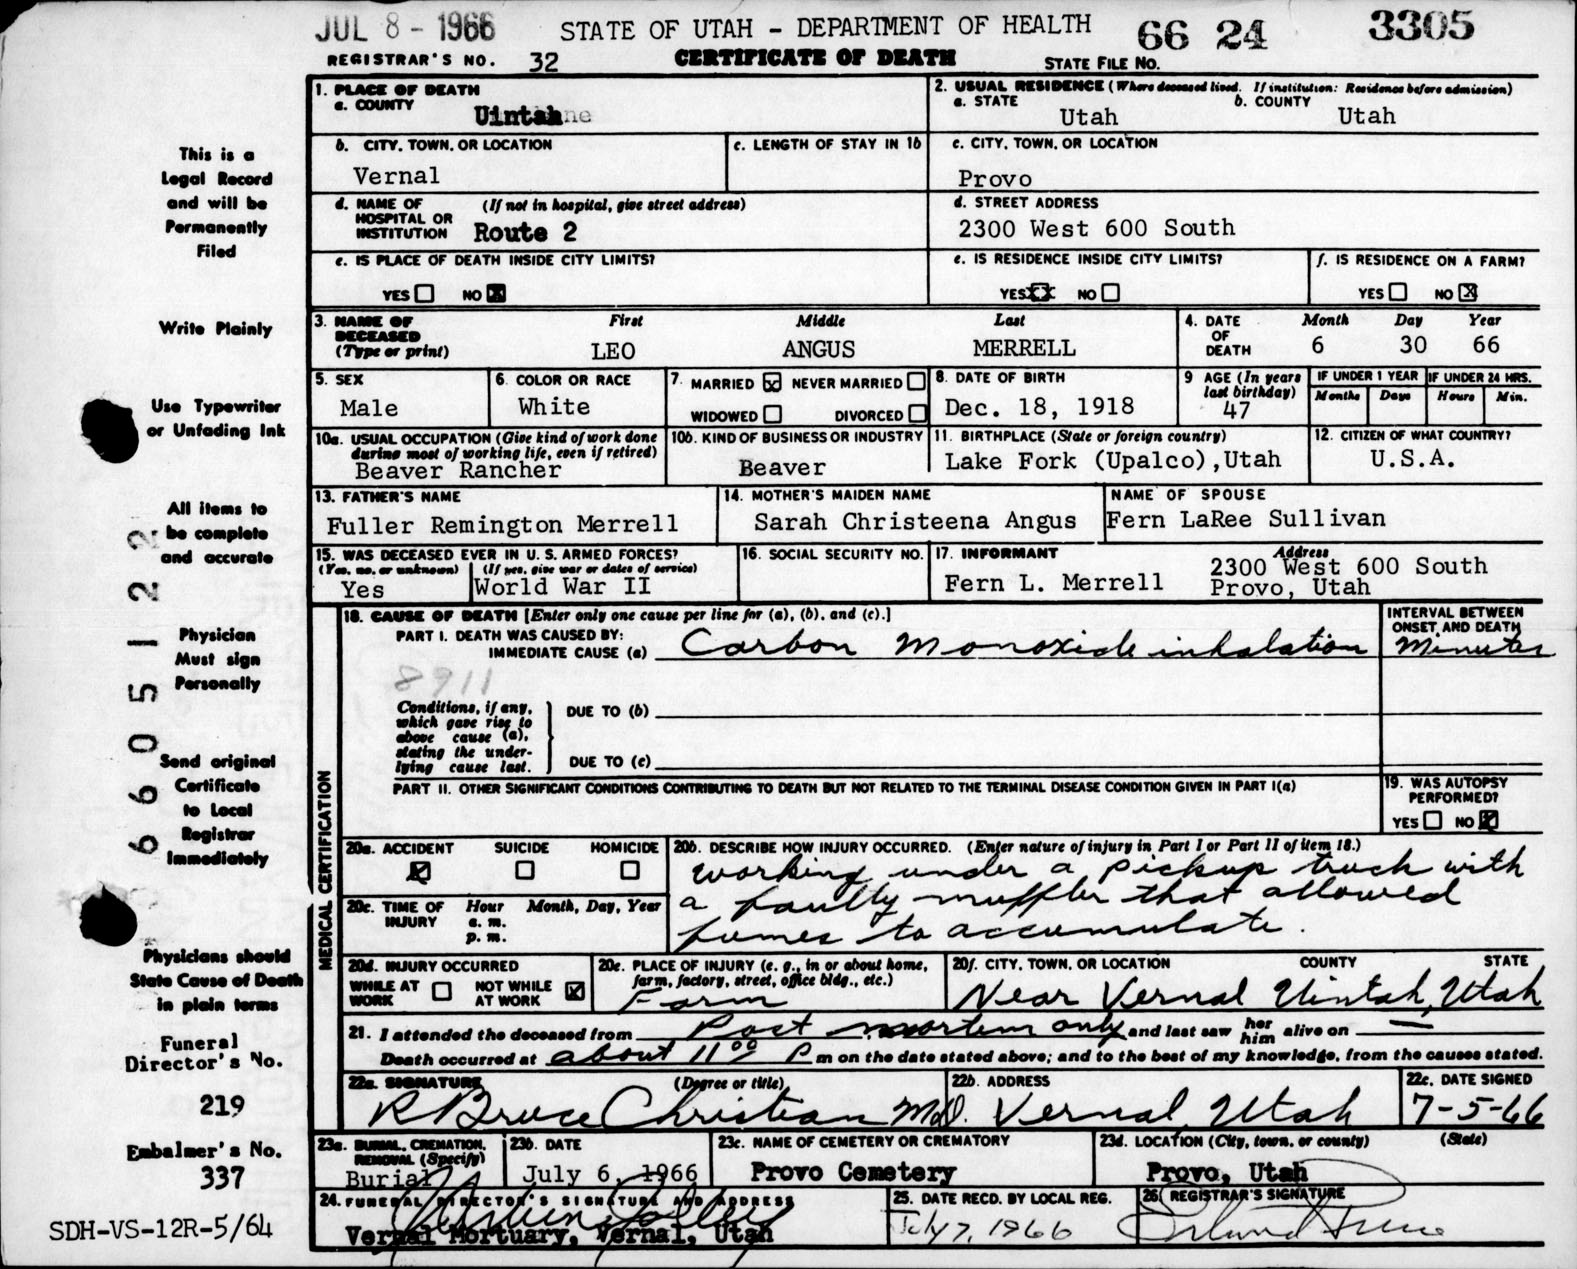 JUL 8 - 1966 STATE OF UTAH - DEPARTMENT OF HEALTH 66 24 3305
REGISTRAR'S NO. 32 CERTIFICATE OF DEATH STATE FILE NO.
1. PLACE OF DEATH
a. COUNTY Uintah
2. USUAL RESIDENCE (Where deceased lived. If institution: Residence before admission)
a. STATE Utah b. COUNTY Utah
b. CITY, TOWN, OR LOCATION
Vernal
c. LENGTH OF STAY IN 1b
c. CITY, TOWN, OR LOCATION
Provo
d. NAME OF HOSPITAL OR INSTITUTION (If not in hospital, give street address)
Route 2
d. STREET ADDRESS
2300 West 600 South
e. IS PLACE OF DEATH INSIDE CITY LIMITS?
YES NO X
e. IS RESIDENCE INSIDE CITY LIMITS?
YES XX NO
f. IS RESIDENCE ON A FARM?
YES NO X
3. NAME OF DECEASED (Type or print)
First Middle Last
LEO ANGUS MERRELL
4. DATE OF DEATH
Month Day Year
6 30 66
5. SEX
Male
6. COLOR OR RACE
White
7. MARRIED X NEVER MARRIED
WIDOWED DIVORCED
8. DATE OF BIRTH
Dec. 18, 1918
9 AGE (In years last birthday)
47
IF UNDER 1 YEAR
Months Days
IF UNDER 24 HRS.
Hours Min.
10a. USUAL OCCUPATION (Give kind of work done during most of working life, even if retired)
Beaver Rancher
10b. KIND OF BUSINESS OR INDUSTRY
Beaver
11. BIRTHPLACE (State or foreign country)
Lake Fork (Upalco), Utah
12. CITIZEN OF WHAT COUNTRY?
U.S.A.
13. FATHER'S NAME
Fuller Remington Merrell
14. MOTHER'S MAIDEN NAME
Sarah Christeena Angus
NAME OF SPOUSE
Fern LaRee Sullivan
15. WAS DECEASED EVER IN U.S. ARMED FORCES?
(Yes, no, or unknown) (If yes, give war or dates of service)
Yes World War II
16. SOCIAL SECURITY NO.
17. INFORMANT Address
Fern L. Merrell 2300 West 600 South
Provo, Utah
MEDICAL CERTIFICATION
18. CAUSE OF DEATH [Enter only one cause per line for (a), (b), and (c).]
INTERVAL BETWEEN ONSET AND DEATH
PART I. DEATH WAS CAUSED BY:
IMMEDIATE CAUSE (a) Carbon Monoxide inhalation Minutes
8911
Conditions, if any, which gave rise to above cause (a), stating the underlying cause last.
DUE TO (b)
DUE TO (c)
PART II. OTHER SIGNIFICANT CONDITIONS CONTRIBUTING TO DEATH BUT NOT RELATED TO THE TERMINAL DISEASE CONDITION GIVEN IN PART I(a)
19. WAS AUTOPSY PERFORMED?
YES NO X
20a. ACCIDENT SUICIDE HOMICIDE
X
20b. DESCRIBE HOW INJURY OCCURRED. (Enter nature of injury in Part I or Part II of item 18.)
working under a pickup truck with
a faulty muffler that allowed
fumes to accumulate.
20c. TIME OF INJURY Hour Month, Day, Year
a. m.
p. m.
20d. INJURY OCCURRED
WHILE AT WORK NOT WHILE AT WORK X
20e. PLACE OF INJURY (e. g., in or about home, farm, factory, street, office bldg., etc.)
Farm
20f. CITY, TOWN, OR LOCATION COUNTY STATE
Near Vernal Uintah, Utah
21. I attended the deceased from Post mortem only and last saw her him alive on —
Death occurred at about 11 00 P m on the date stated above; and to the best of my knowledge, from the causes stated.
22a. SIGNATURE (Degree or title)
R Bruce Christian M.D.
22b. ADDRESS
Vernal, Utah
22c. DATE SIGNED
7-5-66
23a. BURIAL, CREMATION, REMOVAL (Specify)
Burial
23b. DATE
July 6, 1966
23c. NAME OF CEMETERY OR CREMATORY
Provo Cemetery
23d. LOCATION (City, town, or county) (State)
Provo, Utah
24. FUNERAL DIRECTOR'S SIGNATURE AND ADDRESS
Vernal Mortuary, Vernal, Utah
25. DATE RECD. BY LOCAL REG.
July 7, 1966
26. REGISTRAR'S SIGNATURE
This is a
Legal Record
and will be
Permanently
Filed
Write Plainly
Use Typewriter
or Unfading Ink
All items to
be complete
and accurate
Physician
Must sign
Personally
Send original
Certificate
to Local
Registrar
Immediately
Physicians should
State Cause of Death
in plain terms
Funeral
Director's No.
219
Embalmer's No.
337
SDH-VS-12R-5/64
6605122